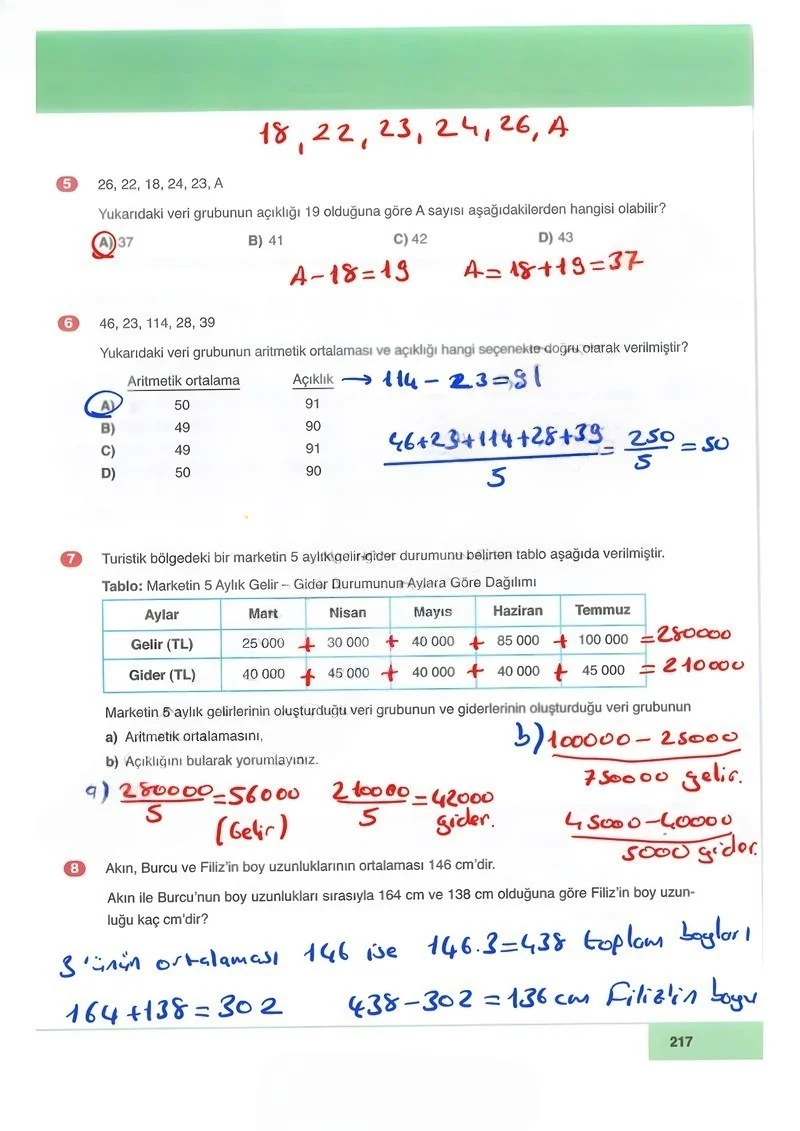 18, 22, 23, 24, 26, A
5 26, 22, 18, 24, 23, A
Yukarıdaki veri grubunun açıklığı 19 olduğuna göre A sayısı aşağıdakilerden hangisi olabilir?
A) 37 B) 41 C) 42 D) 43
A-18=19 A= 18+19=37
6 46, 23, 114, 28, 39
Yukarıdaki veri grubunun aritmetik ortalaması ve açıklığı hangi seçenekte doğru olarak verilmiştir?
Aritmetik ortalama Açıklık → 114 - 23=91
A) 50 91
B) 49 90
C) 49 91
D) 50 90
46+23+114+28+39 / 5 = 250 / 5 = 50
7 Turistik bölgedeki bir marketin 5 aylık gelir-gider durumunu belirten tablo aşağıda verilmiştir.
Tablo: Marketin 5 Aylık Gelir – Gider Durumunun Aylara Göre Dağılımı
Aylar Mart Nisan Mayıs Haziran Temmuz
Gelir (TL) 25 000 + 30 000 + 40 000 + 85 000 + 100 000 =280000
Gider (TL) 40 000 + 45 000 + 40 000 + 40 000 + 45 000 = 210000
Marketin 5 aylık gelirlerinin oluşturduğu veri grubunun ve giderlerinin oluşturduğu veri grubunun
a) Aritmetik ortalamasını,
b) Açıklığını bularak yorumlayınız.
b) 100000 - 25000
750000 gelir.
a) 280000 / 5 =56000 (Gelir) 210000 / 5 =42000 gider.
45000-40000
5000 gider.
8 Akın, Burcu ve Filiz'in boy uzunluklarının ortalaması 146 cm'dir.
Akın ile Burcu'nun boy uzunlukları sırasıyla 164 cm ve 138 cm olduğuna göre Filiz'in boy uzun-
luğu kaç cm'dir?
3'ünün ortalaması 146 ise 146.3=438 toplam boyları
164+138=302 438-302 =136 cm Filiz'in boyu
217